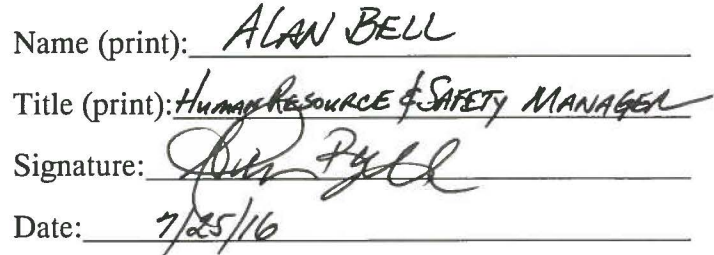 Name (print): ALAN BELL
Title (print): HUMAN RESOURCE & SAFETY MANAGER
Signature:
Date: 7/25/16